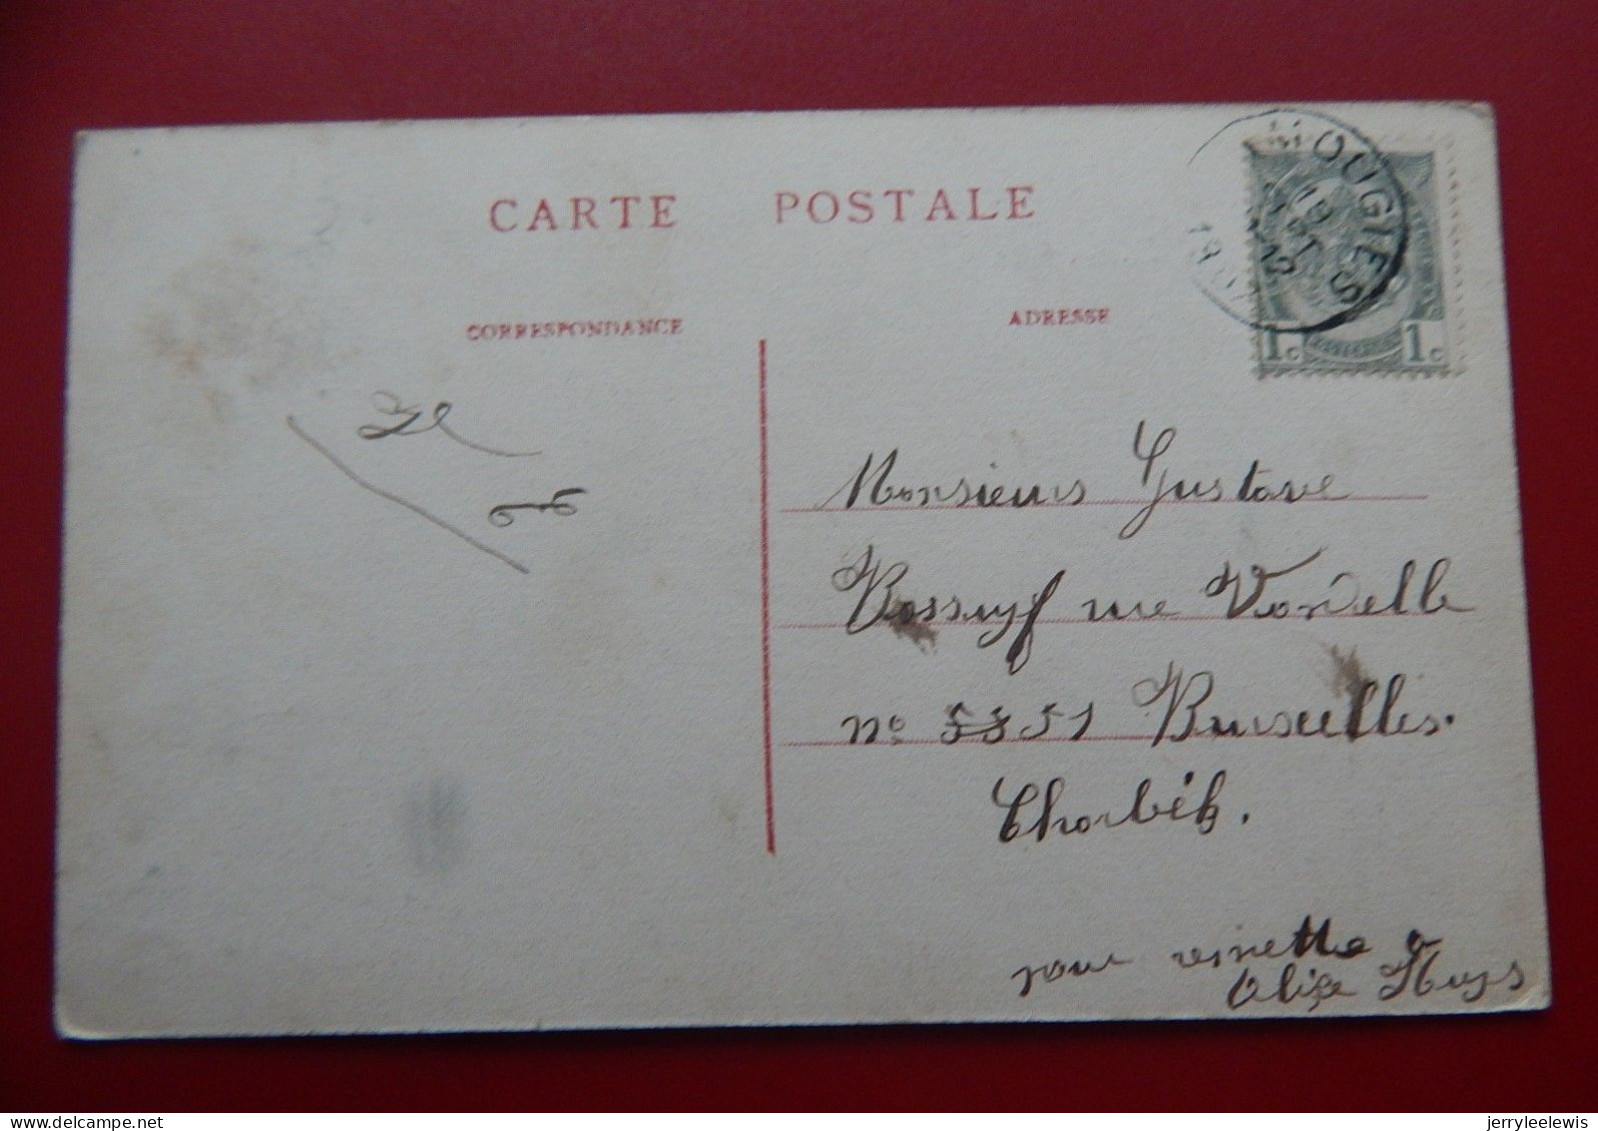 CARTE POSTALE
CORRESPONDANCE
ADRESSE
MOUGIES
1c 1c
Monsieurs Gustave
Bossuyf rue Vondelle
n° 51 Bruxelles.
Chorbék.
pour remettre a
Huys
delcampe.net
jerryleelewis